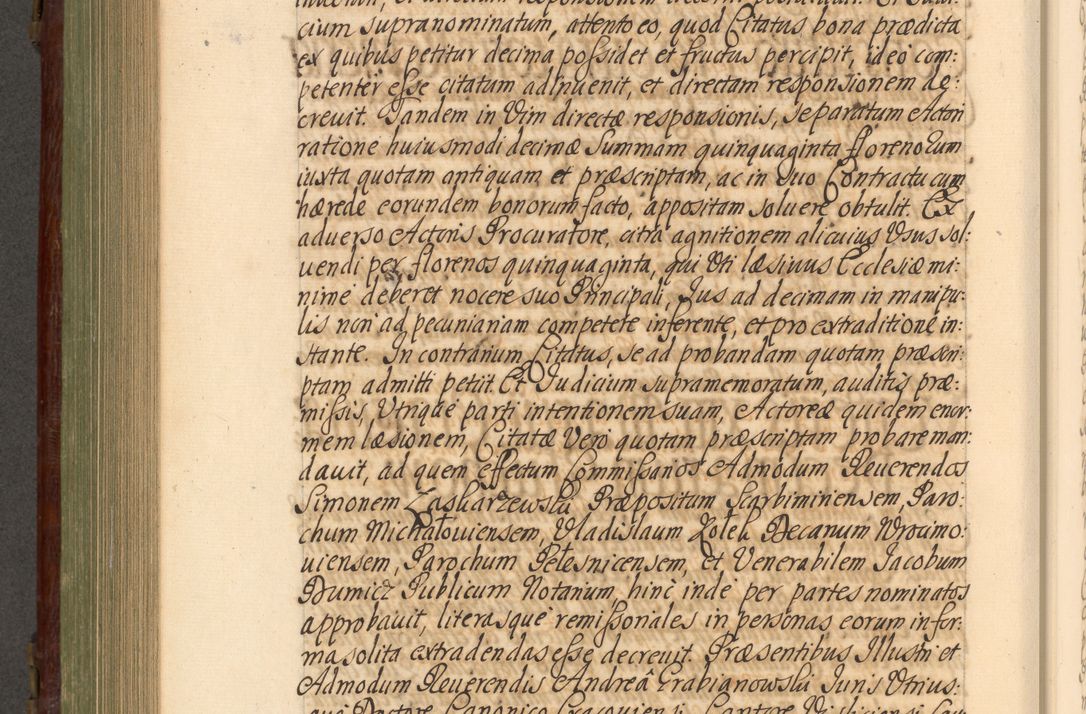 cium supranominatum, attento eo, quod Citatus bona prædicta
ex quibus petitur decima possidet et fructus percipit, ideo com:
petenter esse citatum adinuenit, et directam responsionem de:
creuit. Tandem in Vim directæ responsionis, se paratum Actori
ratione huiusmodi decimæ Summam quinquaginta florenorum
iuxta quotam antiquam et præscriptam, ac in suo Contractu cum
hærede eorundem bonorum facto, appositam soluere obtulit. Ex
aduerso Actoris Procuratore, citra agnitionem alicuius Vsus sol:
uendi per florenos quinquaginta, qui Vti læsiuus Ecclesiæ mi:
nimè deberet nocere suo Principali, Jus ad decimam in manipu:
lis non ad pecuniariam competere inferente, et pro extraditione in:
stante. In contrarium Citatus, se ad probandam quotam præscri:
ptam admitti petiit. Et Judicium supramemoratum, auditis præ:
missis, Vtrique parti intentionem suam, Actoreæ quidem enor:
mem læsionem, Citatæ Verò quotam præscriptam probare man:
dauit, ad quem effectum Commissarios Admodum Reuerendos
Simonem Zaskarzewski Præpositum Skarbimiriensem, Paro:
chum Michałouiensem, Vladislaum Zołek Decanum Wrocimo:
uiensem, Parochum Pełesnicensem, et Venerabilem Jacobum
Dumicz Publicum Notarium, hinc inde per partes nominatos
approbauit, literasque remissoriales in personas eorum in for:
ma solita extradendas esse decreuit. Præsentibus Illustri et
Admodum Reuerendis Andreâ Grabianowski Juris Vtrius:
que Doctore Canonico Cracouiensi, Cantore